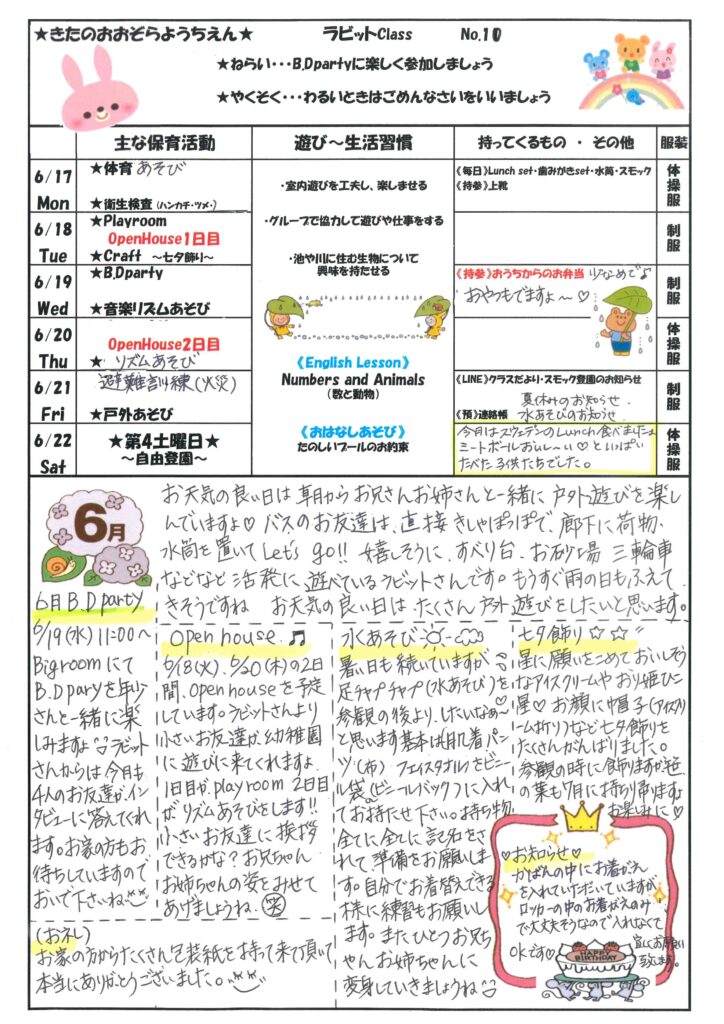 ★きたのおおぞらようちえん★　ラビットClass　No.10
★ねらい・・・B.Dpartyに楽しく参加しましょう
★やくそく・・・わるいときはごめんなさいをいいましょう
主な保育活動　遊び～生活習慣　持ってくるもの ・ その他　服装
6/17 Mon
★体育あそび
★衛生検査（ハンカチ・ツメ・）
《毎日》Lunch set・歯みがきset・水筒・スモック
《持参》上靴
体操服
6/18 Tue
★Playroom
OpenHouse1日目
★Craft ～七夕飾り～
制服
6/19 Wed
★B.Dparty
★音楽リズムあそび
《持参》おうちからのお弁当 少なめで♪
おやつもでますよ～♡
制服
6/20 Thu
OpenHouse2日目
★リズムあそび
体操服
6/21 Fri
避難訓練（火災）
★戸外あそび
《LINE》クラスだより・スモック登園のお知らせ
夏休みのお知らせ
《預》連絡帳 水あそびのお知らせ
制服
6/22 Sat
★第4土曜日★
～自由登園～
今月はスウェデンのLunch食べましたよ
ミートボールおいし～い♡といっぱい
たべた子供たちでした。
体操服
・室内遊びを工夫し、楽しませる
・グループで協力して遊びや仕事をする
・池や川に住む生物について
興味を持たせる
《English Lesson》
Numbers and Animals
（数と動物）
《おはなしあそび》
たのしいプールのお約束
6月
お天気の良い日は朝からお兄さんお姉さんと一緒に戸外遊びを楽し
んでいますよ♡バスのお友達は、直接きしゃぽっぽで、廊下に荷物、
水筒を置いてLet's go!! 嬉しそうに、すべり台、お砂場 三輪車
などなど活発に遊べているラビットさんです。もうすぐ雨の日もふえて
きそうですね お天気の良い日はたくさん戸外遊びをしたいと思います。
6月 B.D party
6/19(水) 11:00～
Big roomにて
B.D paryを年少
さんと一緒に楽
しみますよ ラビット
さんからは今月も
4人のお友達がイン
タビューに答えてくれ
ます。お家の方もお
待ちしていますので
おいで下さいね
Open house ♫
6/18(火)、6/20(木)の2日
間、Open houseを予定
しています。ラビットさんより
小さいお友達が幼稚園
に遊びに来てくれますよ
1日目がplayroom 2日目
がリズムあそびをします!!
小さいお友達に挨拶
できるかな？お兄ちゃん
お姉ちゃんの姿をみせて
あげましょうね。笑
水あそび
暑い日も続いていますが
足チャプチャプ（水あそび）を
参観の後より、したいなぁ～
と思います基本は肌着パン
ツ（布） フェイスタオルをビニー
ル袋（ビニールバック）に入れ
てお持たせ下さい。持ち物
全てに全てに記名をさ
れて準備をお願いしま
す。自分でお着替えできる
様に練習もお願いし
ます。またひとつお兄ち
ゃんお姉ちゃんに
変身していきましょうね
七夕飾り☆☆
星に願いをこめておいしそう
なアイスクリームやおり姫ひこ
星♡お顔に帽子（アイスクリ
ーム折り）など七夕飾りを
たくさんがんばりました。
参観の時に飾りますが笹
の葉も7月に持ち帰ります
お楽しみに♡
♡お知らせ♡
かばんの中にお着がえ
を入れていただいていますが
ロッカーの中のお着がえのみ
で大丈夫そうなので入れなくて
OKです♡ 宜しくお願い
致します。
HAPPY BIRTHDAY
（お礼）
お家の方からたくさん包装紙を持って来て頂いて
本当にありがとうございました。